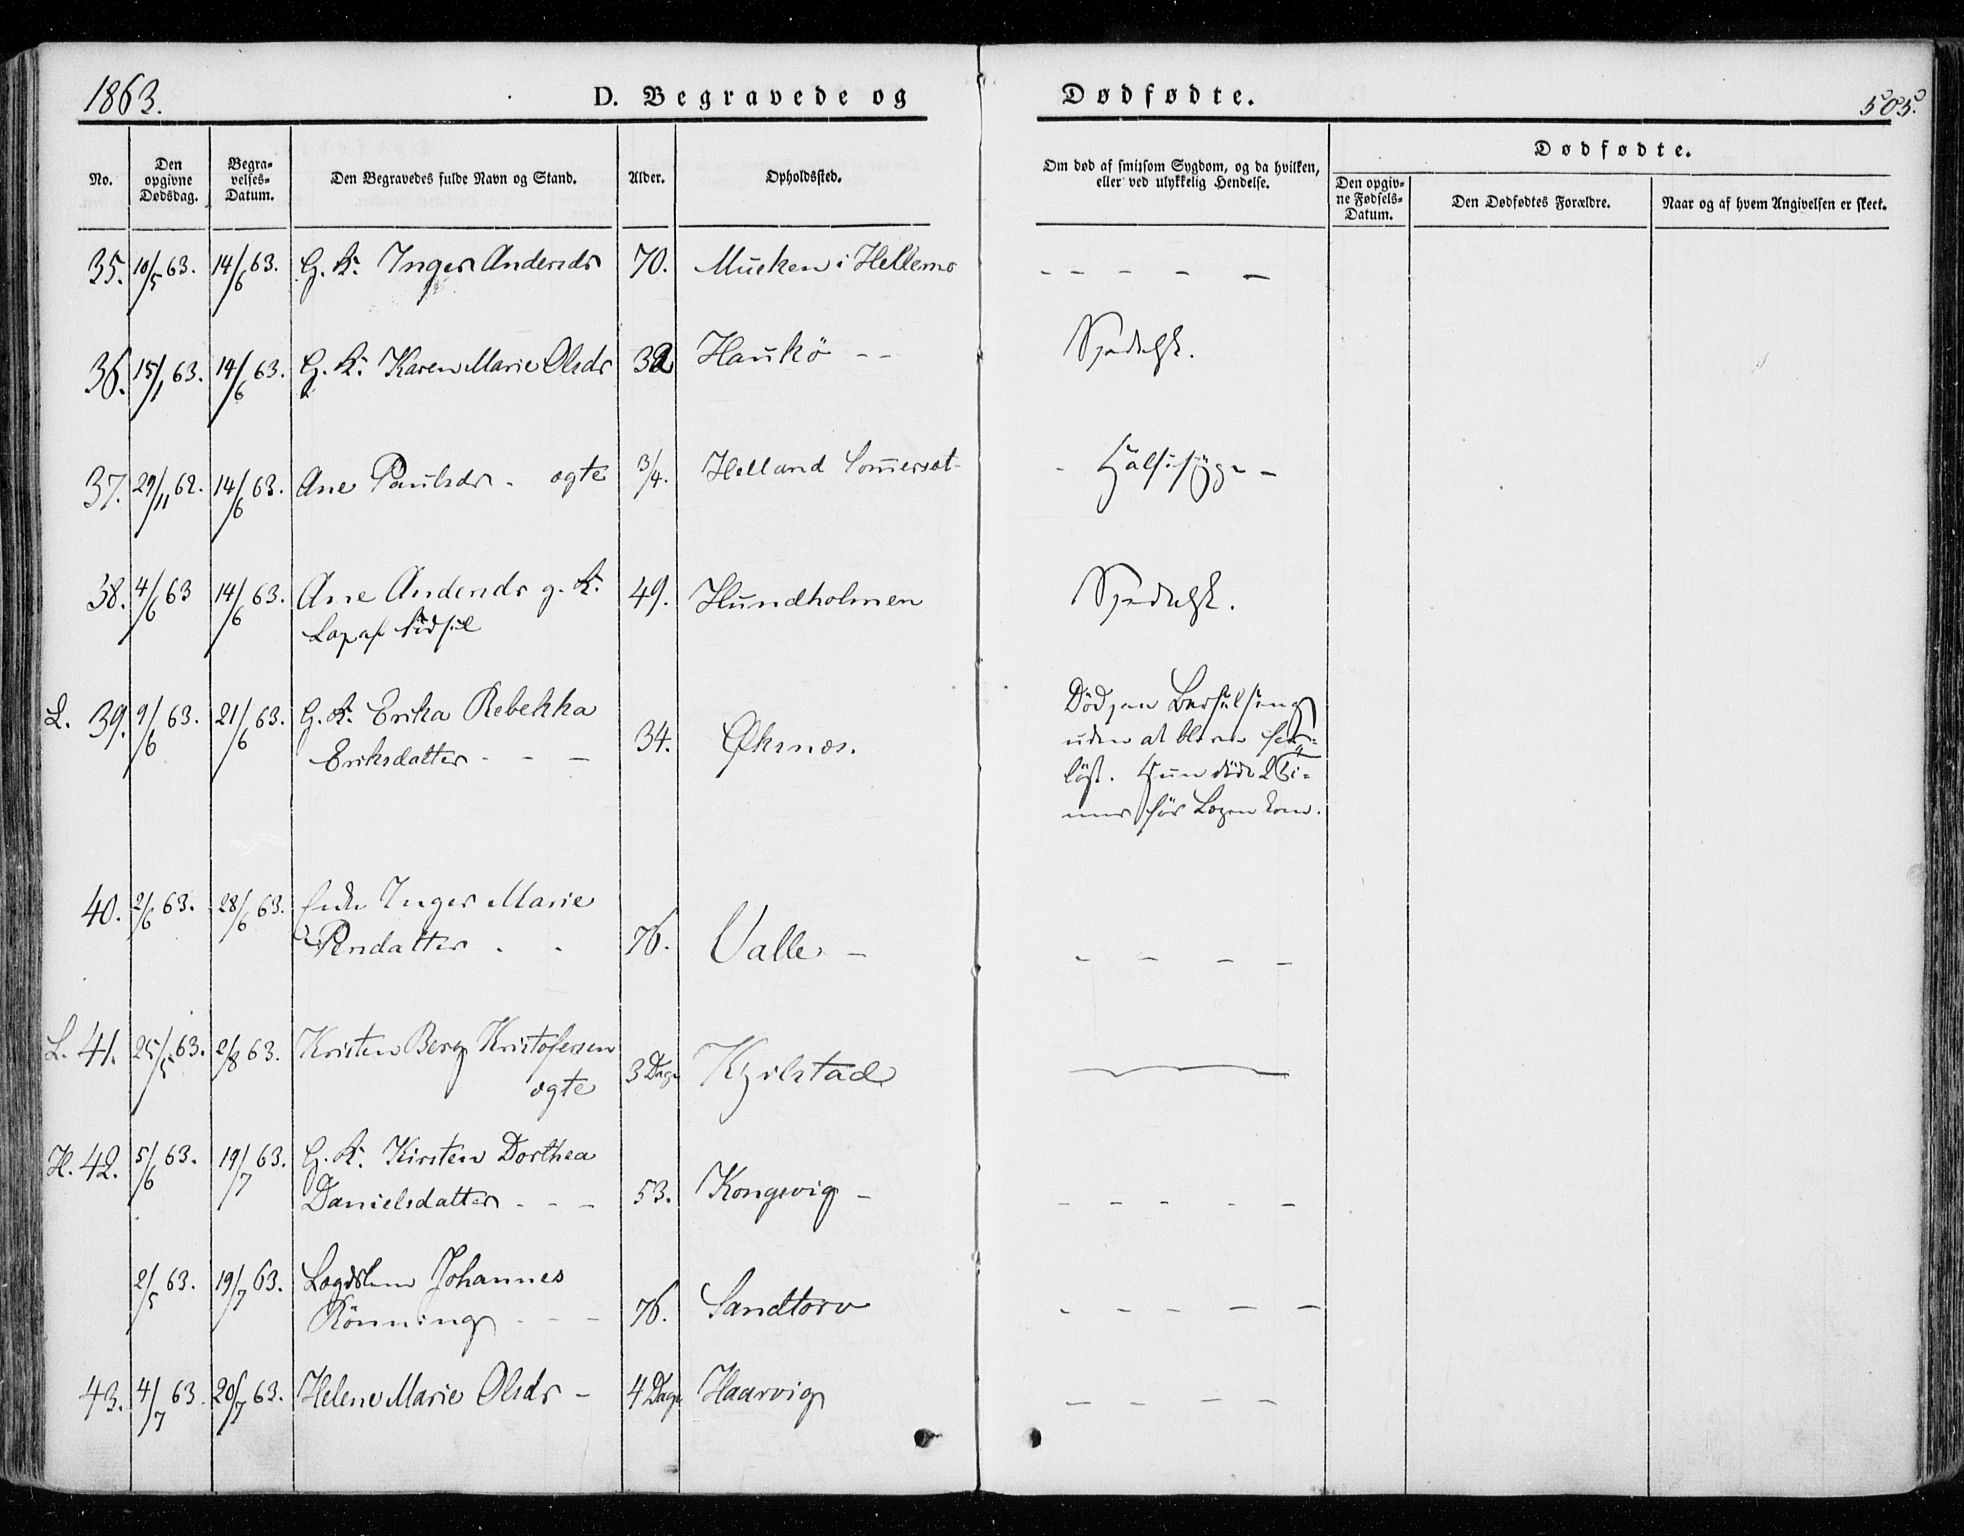 1863.
D. Begravede og Dødfødte.
505.
No.
Den opgivne Dødsdag.
Begravelses-Datum.
Den Begravedes fulde Navn og Stand.
Alder.
Opholdssted.
Om død af smitsom Sygdom, og da hvilken,
eller ved ulykkelig Hendelse.
Dødfødte.
Den opgivne Fødsels-Datum.
Den Dødfødtes Forældre.
Naar og af hvem Angivelsen er skeet.
35. 10/5 63. 14/6 63. G. K. Inger Andersdr 70. Musken i Hellemo
36. 15/1 63. 14/6 63. G. K. Karen Marie Olsdr 32 Haukö Spedalsk.
37. 29/11 62. 14/6 63. Ane Paulsdr. ægte 3/4. Helland Sommersæt Halssyge
38. 4/6 63 14/6 63. Ane Andersdr g. K. 49. Hundholmen Spedalsk.
Lap af
L. 39. 9/6 63. 21/6 63. G. K. Erika Rebekka
Eriksdatter 34. Øksnæs.
Död paa Barselseng
uden at blive for-
löst. Hun døde 2 Ti-
mer för Lægen kom.
40. 2/6 63. 28/6 63. Enke Inger Marie
Pedersdatter 76. Valle
L. 41. 25/5 63. 2/8 63. Kristen Berg Kristofersen
ægte 3 Dage Kjelstad
H. 42. 5/6 63. 19/7 63. G. K. Kirsten Dorthea
Danielsdatter 53. Kongsvig
2/5 63. 19/7 63. Lægdslem Johannes
Rönning 76. Sandtorv
43. 4/7 63. 20/7 63. Helene Marie Olsdr 4 Dage Haarvig